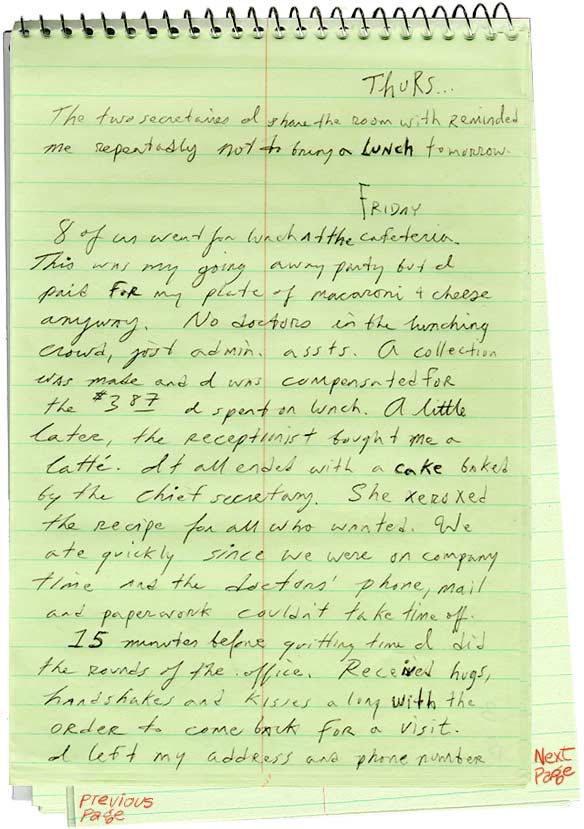 THURS...
The two secretaires I share the room with Reminded
me repeatadly not to bring a LUNCH tomorrow.
FRIDAY
8 of us went for lunch At the cafeteria.
This was my going away party but I
paid FOR my plate of macaroni + cheese
anyway. No doctors in the lunching
crowd, just admin. assts. A collection
was made and I was compensated FOR
the $3.87 I spent on lunch. A little
later, the receptionist bought me a
latté. It all ended with a cake baked
by the chief secretary. She xeroxed
the recipe for all who wanted. We
ate quickly since we were on company
time and the doctors' phone, mail
and paperwork couldn't take time off.
15 minutes before quitting time I did
the rounds of the office. Received hugs,
handshakes and kisses along with the
ORDER to come back FOR a visit.
I left my address and phone number
Next
Page
Previous
Page